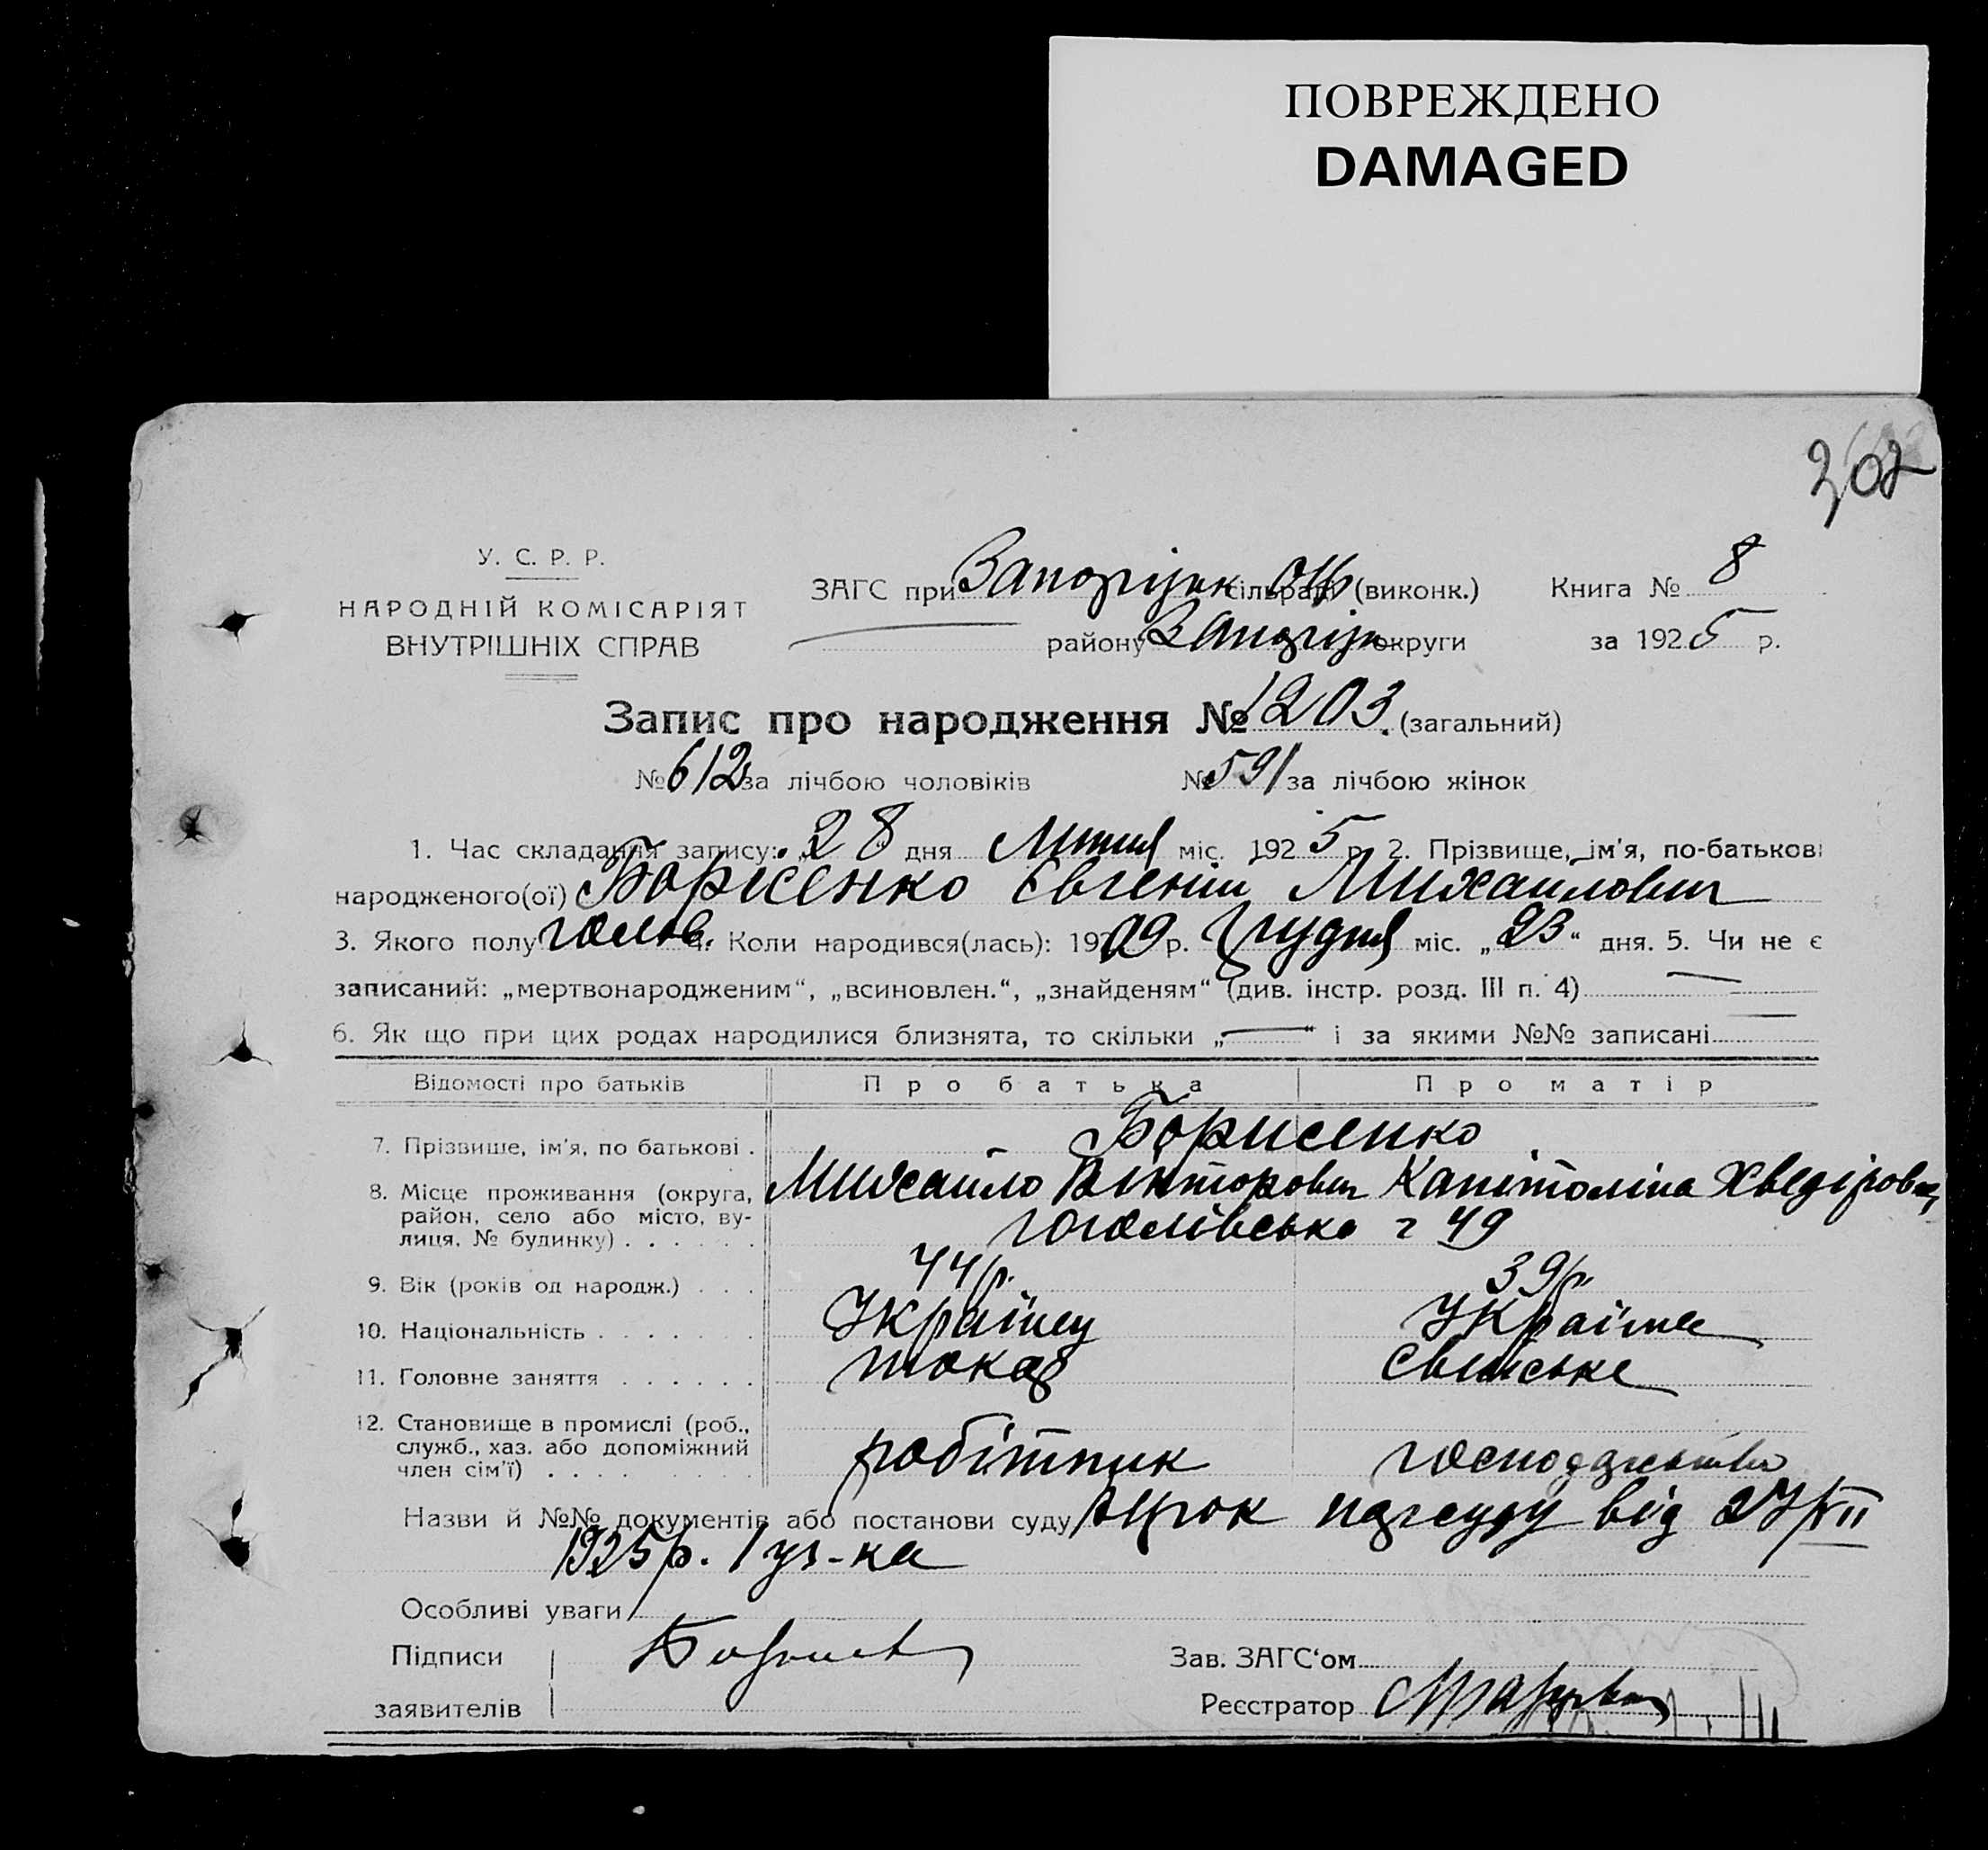 ПОВРЕЖДЕНО
DAMAGED
302
У. С. Р. Р.
НАРОДНІЙ КОМІСАРІЯТ
ВНУТРІШНІХ СПРАВ
ЗАГС при Запоріжж сільраді (виконк.) Книга № 8
району Запоріж округи за 1925 р.
Запис про народження № 1203. (загальний)
№ 612 за лічбою чоловіків № 591 за лічбою жінок
1. Час складання запису: „28“ дня Липня міс. 1925 р. 2. Прізвище, ім'я, по-батькові
народженого(ої) Борисенко Євгеній Михайлович
3. Якого полу чолов. 4. Коли народився(лась): 1909 р. Грудня міс. „23“ дня. 5. Чи не є
записаний: „мертвонародженим“, „всиновлен.“, „знайденям“ (див. інстр. розд. III п. 4)
6. Як що при цих родах народилися близнята, то скільки „—“ і за якими №№ записані
Відомості про батьків Про батька Про матір
7. Прізвище, ім'я, по батькові . Борисенко
8. Місце проживання (округа, Михайло Вікторович Капітоліна Хведіровна
район, село або місто, ву-
лиця, № будинку) . . . . . . гоголівська 49
9. Вік (років од народж.) . . . 44 р. 39 р.
10. Національність . . . . . . . Українец Українка
11. Головне заняття . . . . . . токар свійське
12. Становище в промислі (роб.,
служб., хаз. або допоміжний
член сім'ї) . . . . . . . . . робітник господарство
Назви й №№ документів або постанови суду нарсуду від 27/VII
1925 р. 1 уч-ка
Особливі уваги
Підписи Зав. ЗАГС‘ом
заявителів Реєстратор